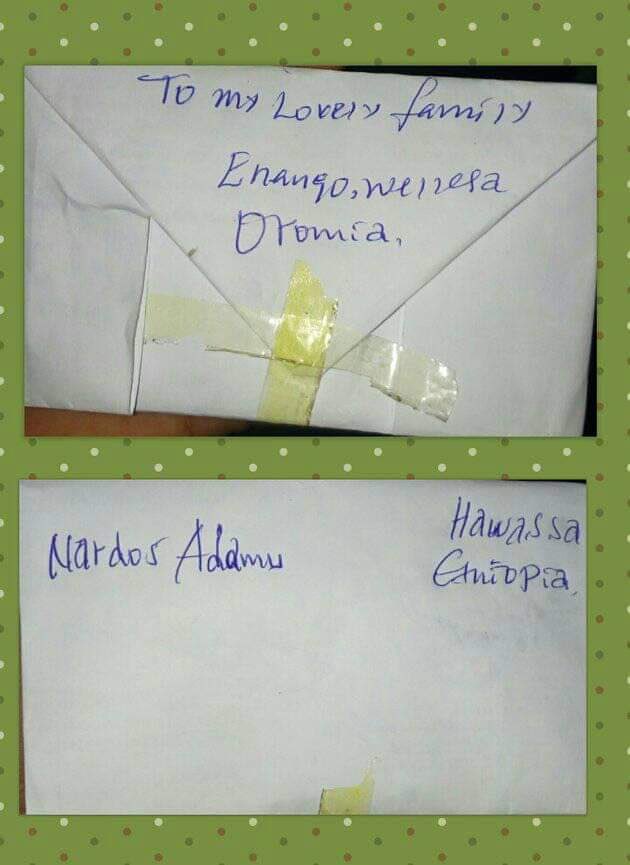 To my Lovely family
Enango, Wellega
Oromia.
Nardos Adamu
Hawassa
Ethiopia.